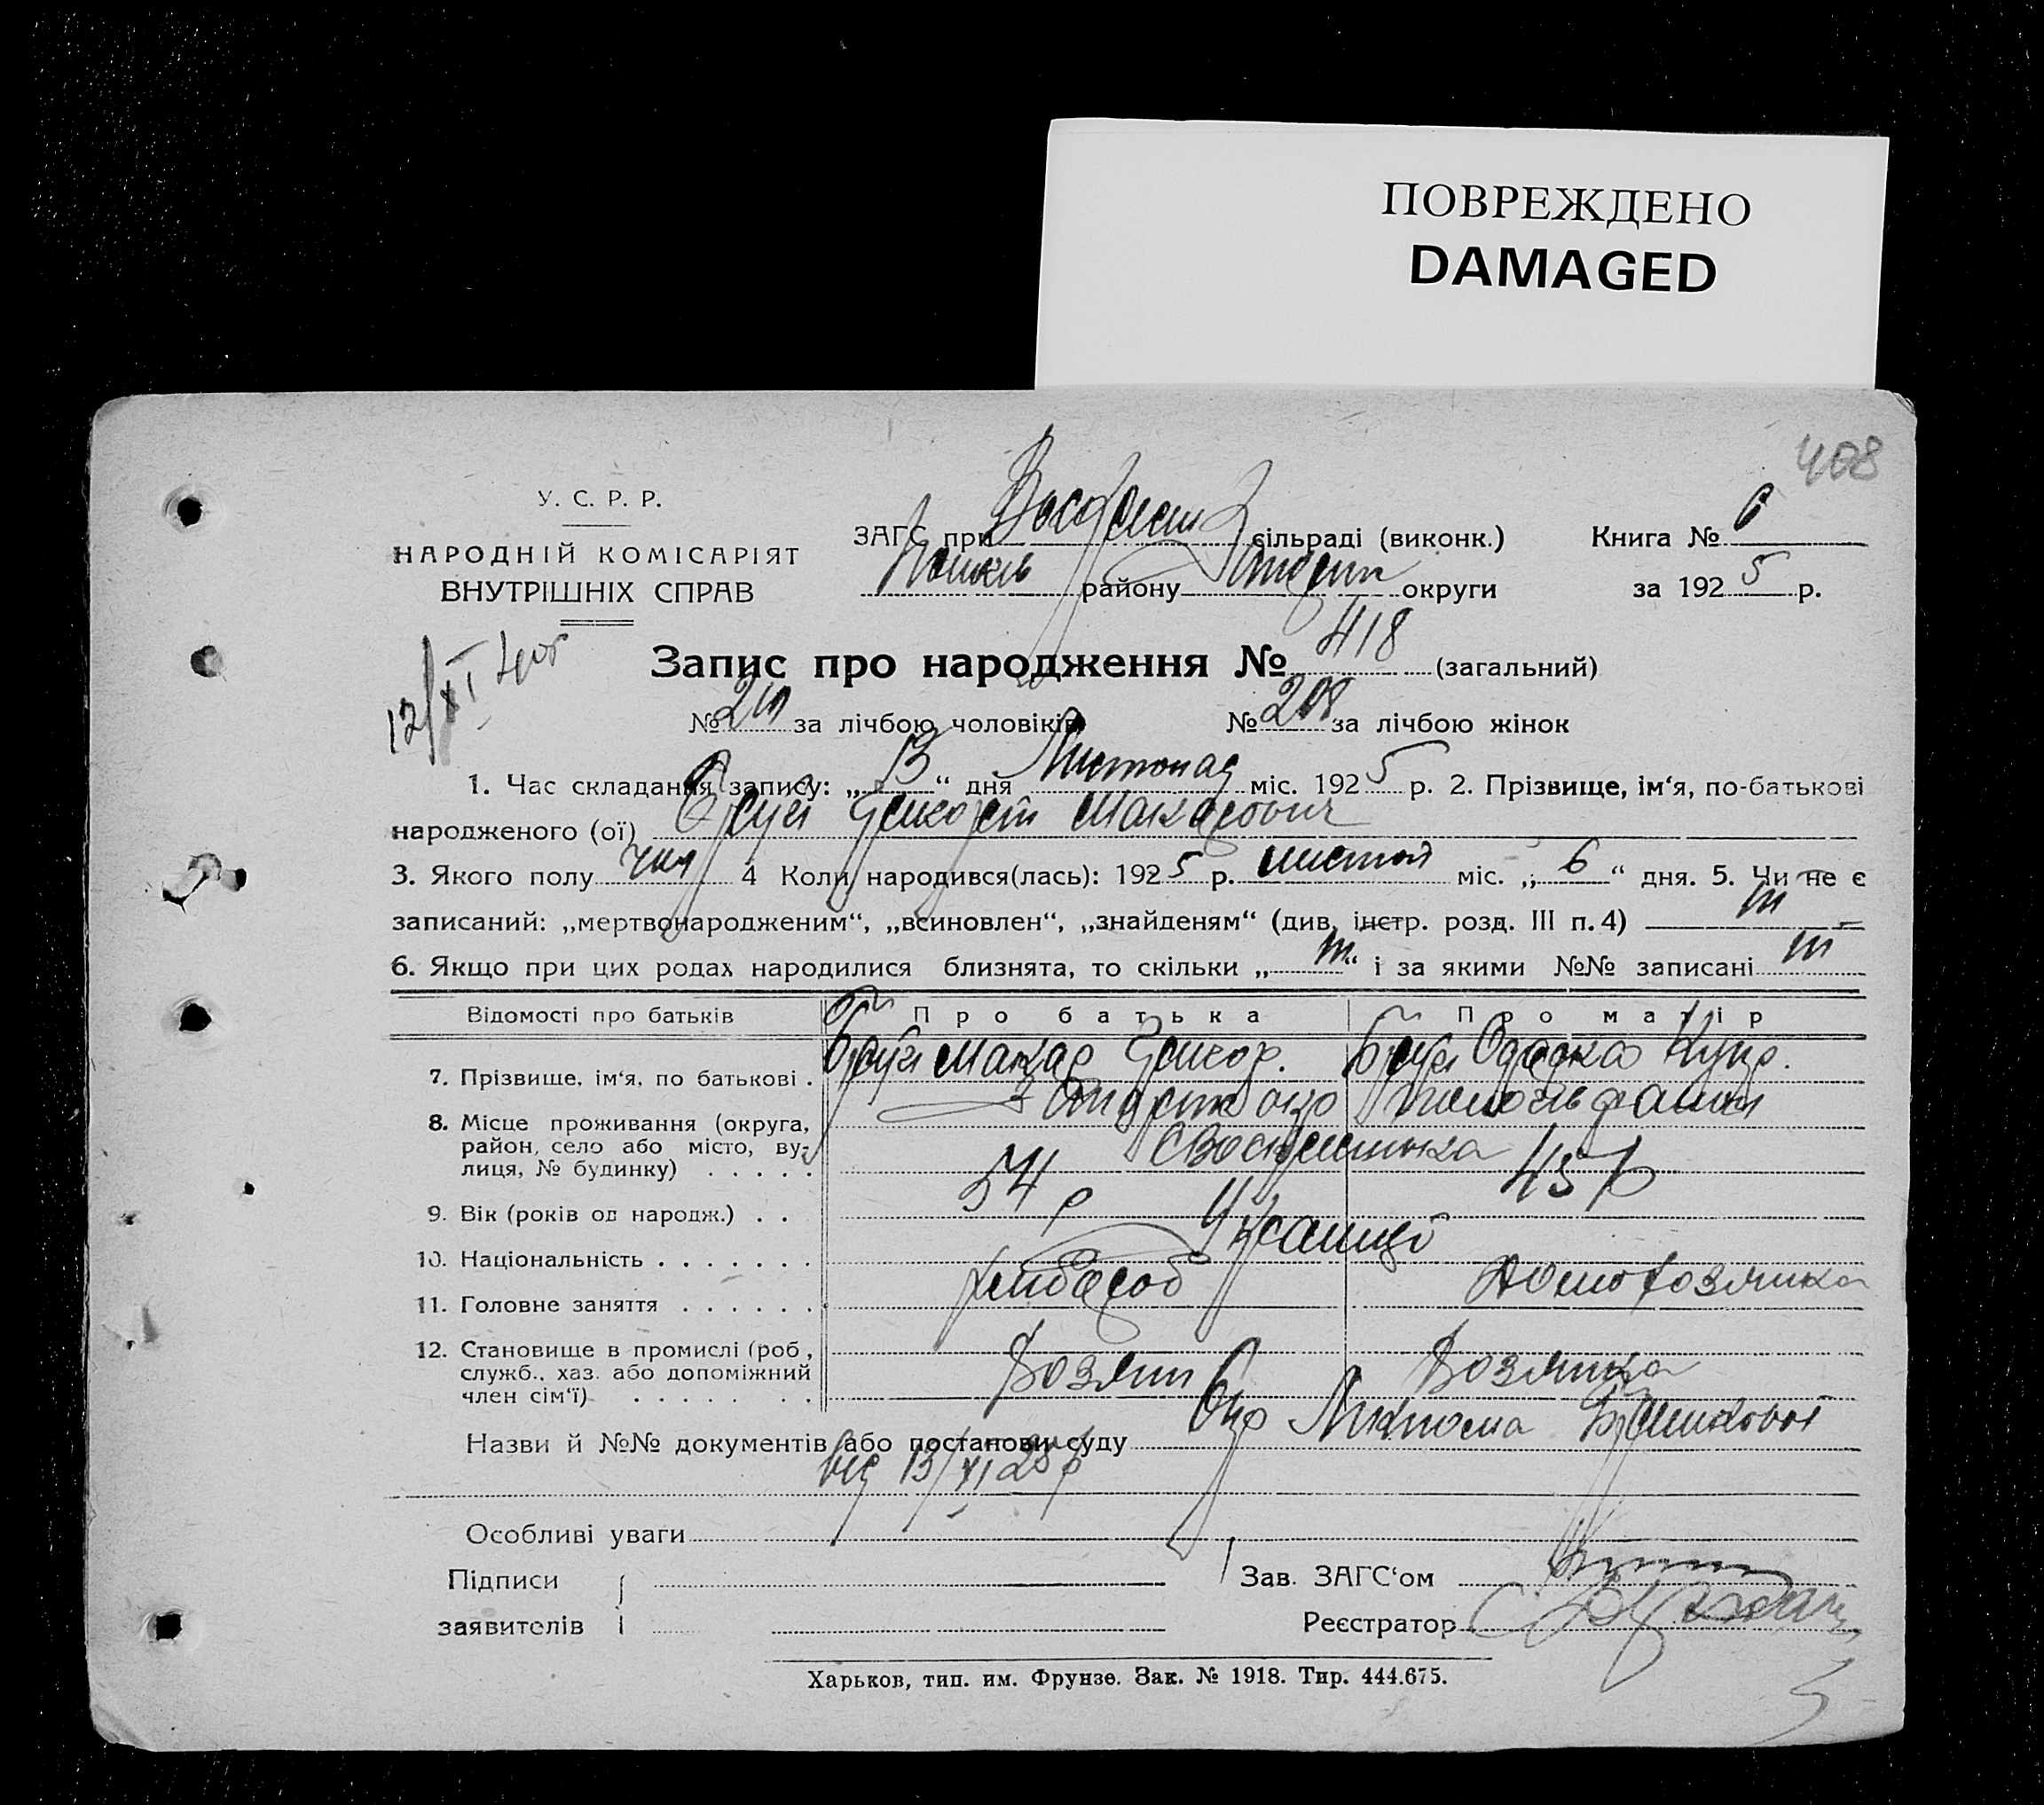 ПОВРЕЖДЕНО
DAMAGED
408
У. С. Р. Р.
НАРОДНІЙ КОМІСАРІЯТ
ВНУТРІШНІХ СПРАВ
ЗАГС при сільраді (виконк.) Книга № 6
району округи за 1925 р.
12/XI
Запис про народження № 418 (загальний)
№ 210 за лічбою чоловіків № 208 за лічбою жінок
1. Час складання запису: „13“ дня Листопад міс. 1925 р. 2. Прізвище, ім'я, по-батькові
народженого (ої) Макарович
3. Якого полу чол 4 Коли народився(лась): 1925 р. листоп міс. „6“ дня. 5. Чи не є
записаний: „мертвонародженим“, „всиновлен“, „знайденям“ (див. інстр. розд. III п. 4)
6. Якщо при цих родах народилися близнята, то скільки „ “ і за якими №№ записані
Відомості про батьків Про батька Про матір
7. Прізвище, ім'я, по батькові . Макар Одарка Купр.
8. Місце проживання (округа,
район, село або місто, ву-
лиця, № будинку) . . . . .
9. Вік (років од народж.) . . 54 р 45 р
10. Національність . . . . . . . Українці
11. Головне заняття . . . . . . Хлібороб Домохозяйка
12. Становище в промислі (роб.,
служб., хаз. або допоміжний
член сім'ї) . . . . . . . Хозяин Хозяйка
Назви й №№ документів або постанови суду
від 13/XI 25 р
Особливі уваги
Підписи Зав. ЗАГС'ом
заявителів Реєстратор
Харьков, тип. им. Фрунзе. Зак. № 1918. Тир. 444.675.